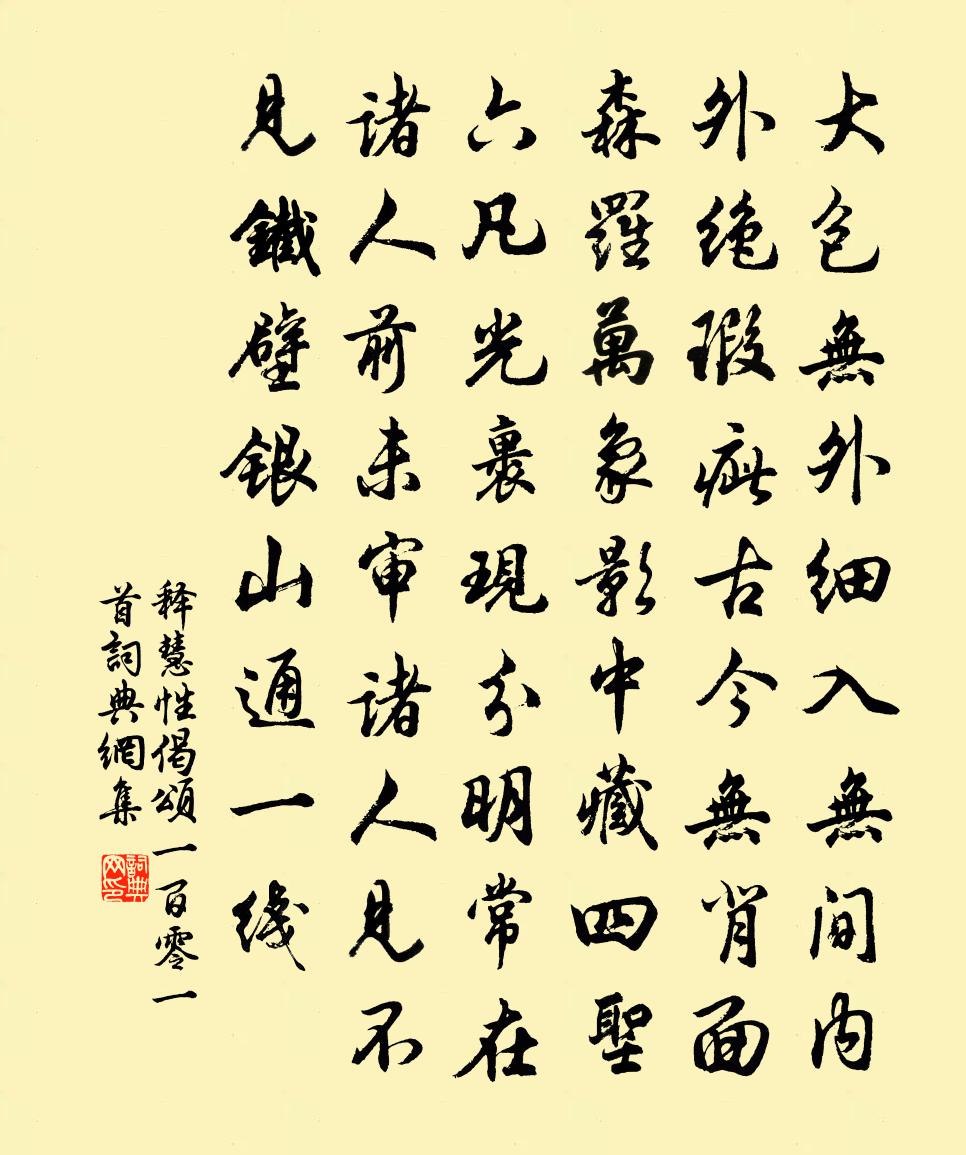 大包無外細入無間内
外絶瑕疵古今無背面
森羅萬象影中藏四聖
六凡光裏現分明常在
諸人前未審諸人見不
見鐵壁銀山通一綫
释慧性偈頌一百零一
首詞典網集
詞典网印